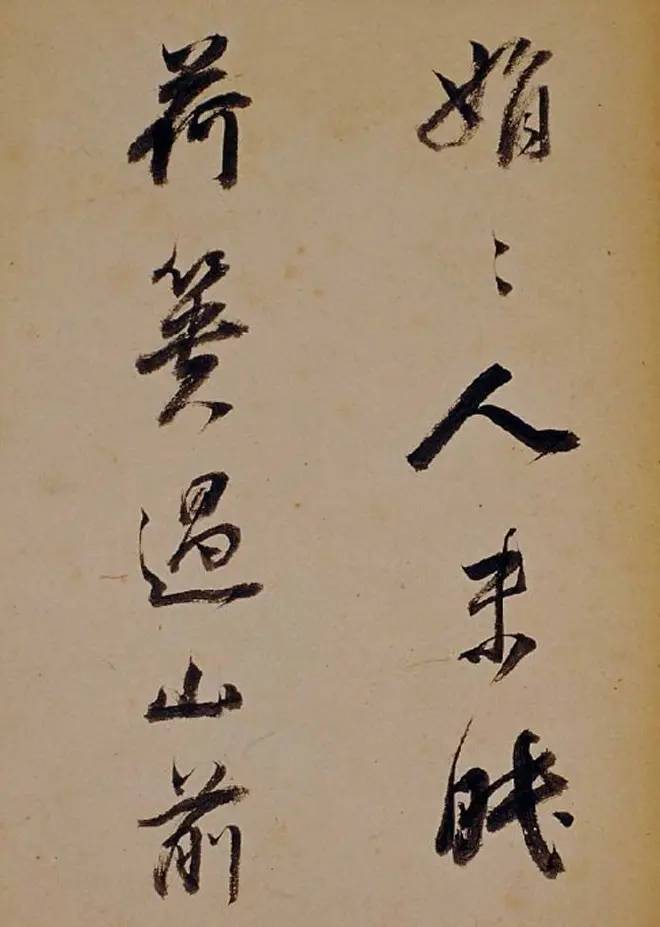 娟〻人未眠
荷簣過山前